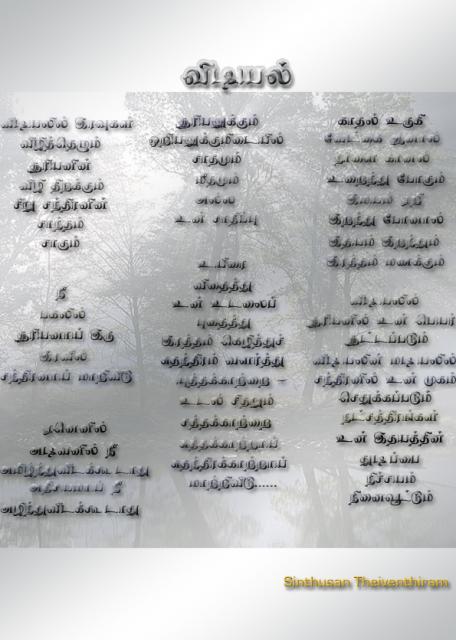 விடியல்
விடியலில் இரவுகள்
விழித்தெழும்
சூரியனின்
விழி திறக்கும்
சிறு சந்திரனின்
சாந்தம்
சாகும்
நீ
பகலில்
சூரியனாய் இரு
இரவில்
சந்திரனாய் மாறிவிடு
அடிவானில் நீ
அமிழ்ந்துவிடக்கூடாது
அதிசயமாய் நீ
அழிந்துவிடக்கூடாது
சூரியனுக்கும்
சாதமும்
மீதமும்
அல்ல
உன் சாதிப்பு
உயிரை
விதைத்து
உன் உடலைப்
புதைத்து
இரத்தம் கொழித்துச்
சுதந்திரம் வளர்த்து
யுத்தக்காற்றை -
உடல் சிதறும்
சத்தக்காற்றை
சுத்தக்காற்றாய்
சுதந்திரக்காற்றாய்
மாற்றிவிடு......
காதல் உருகி
வேட்கை ஆனால்
நாளை கானல்
உறைந்து போகும்
இமயம் ஏறி
இறந்து போனால்
இதயம் இறந்தும்
இரத்தம் மணக்கும்
விடியலில்
சூரியனில் உன் பெயர்
சூட்டப்படும்
விடியலின் மடியில்
சந்திரனில் உன் முகம்
செதுக்கப்படும்
நட்சத்திரங்கள்
உன் இதயத்தின்
துடிப்பை
நிச்சயம்
நினைவூட்டும்
Sinthusan Theiventhiram